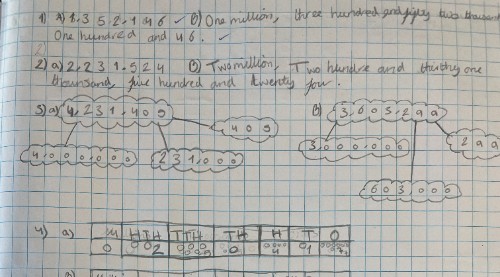 1) A) 1.3 5 2.1 4 6 ✓ B) One million, three hundred and fifty two thousan
One hundred and 46. ✓
2) a) 2.2 3 1.5 2 4 B) Two million, Two hundre and thirthy one
thousand, five hundred and twenty four.
3) a) 4.2 3 1.4 0 9 B) 3.6 0 3.2 9 9
4 0 9
4.0 0 0.0 0 0 2 3 1.0 0 0 3.0 0 0 0 0 0 2 9 9
6 0 3 0 0 0
4) a) M HTH TTH TH H T O
0 2 0 4 1